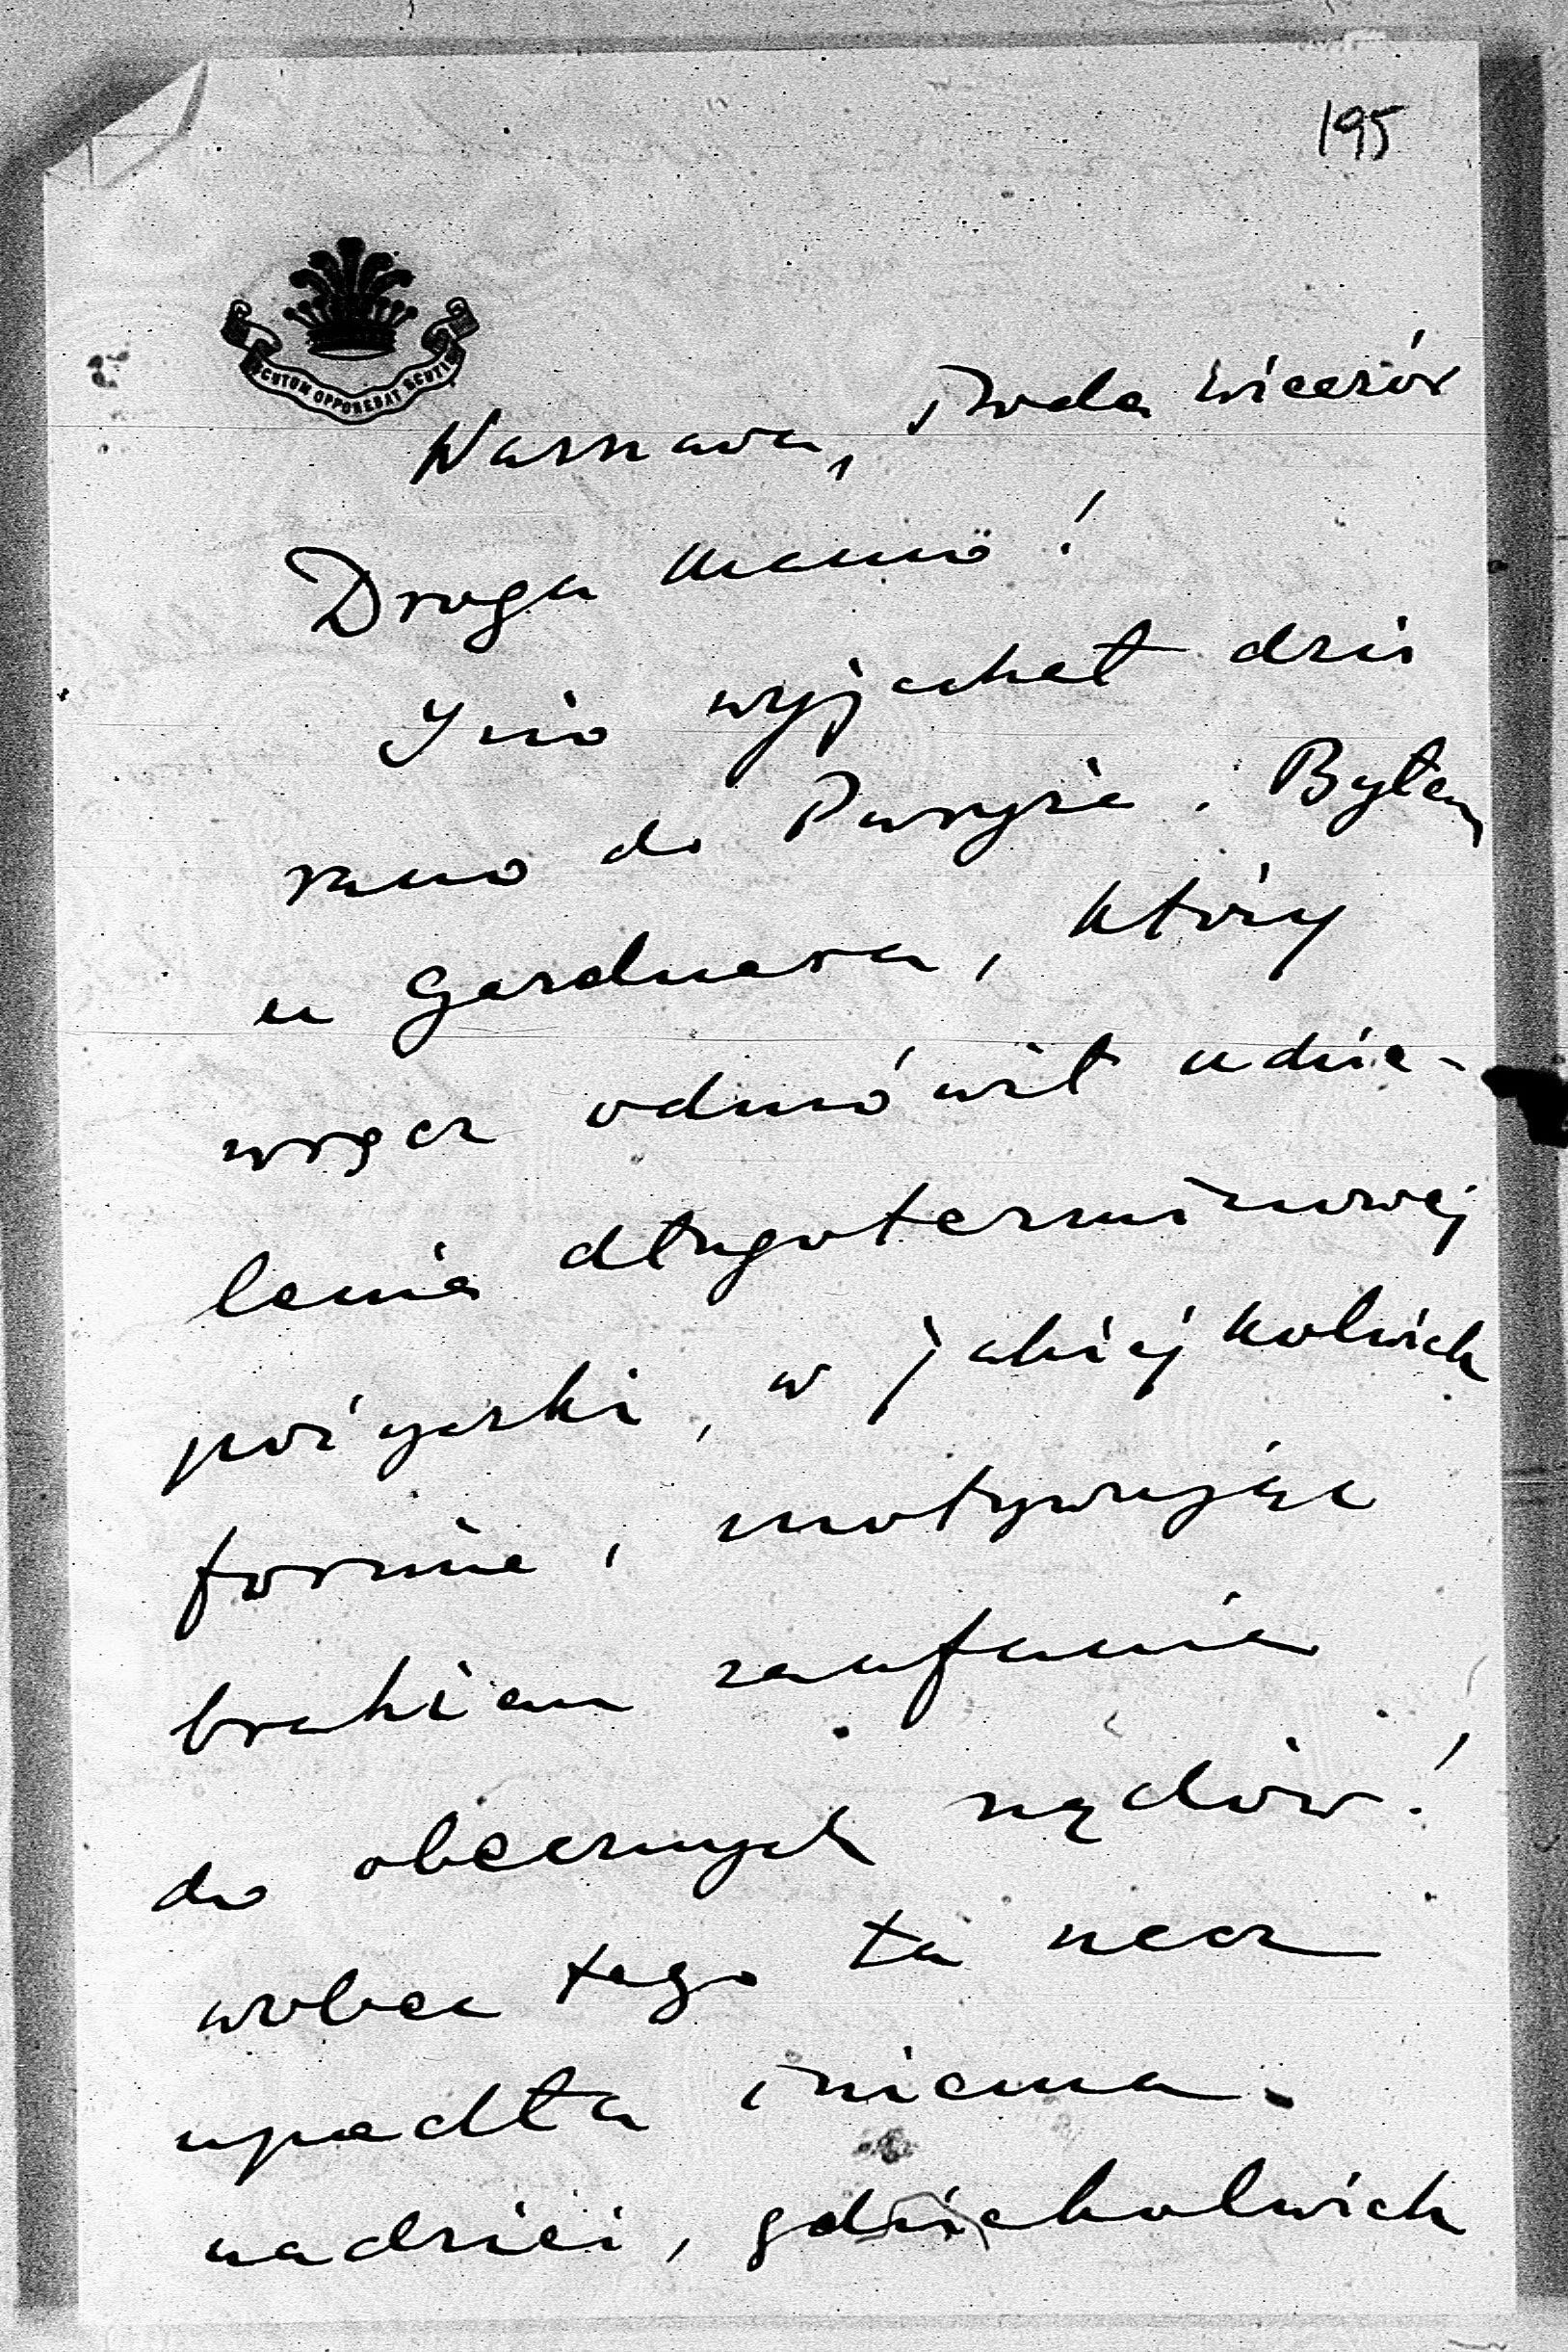 195
SCUTUM OPPONEBAT SCUTIS
Warszawa, środa wieczór
Droga Mamo!
Inio wyjechał dziś
rano do Paryża. Byłam
u Gardnera, który
wręcz odmówił udzie-
lenia długoterminowej
pożyczki, w jakiejkolwiek
formie, motywując
brakiem zaufania
do obecnych rządów!
wobec tego ta rzecz
upadła i niema
nadziei, gdziekolwiek